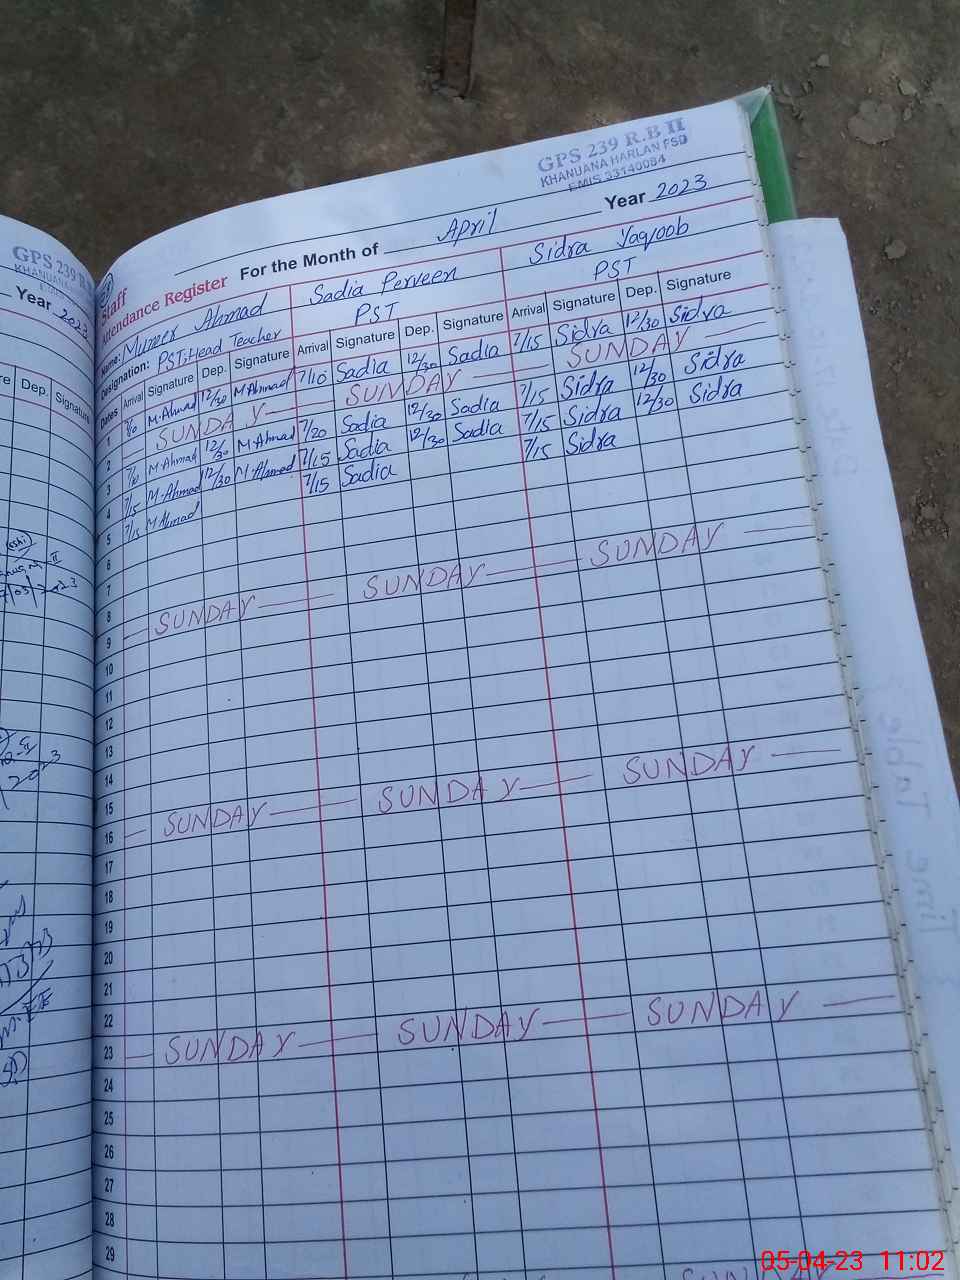 GPS 239 R.B II
KHANUANA HARLAN FSD
EMIS 33140084
Staff
Attendance Register For the Month of April Year 2023
Name: Muneer Ahmad Sadia Perveen Sidra Yaqoob
Designation: PST, Head Teacher PST PST
Dates Arrival Signature Dep. Signature Arrival Signature Dep. Signature Arrival Signature Dep. Signature
1 7/10 M.Ahmad 12/30 M.Ahmad 7/10 Sadia 12/30 Sadia 7/15 Sidra 12/30 Sidra
2 SUNDAY SUNDAY SUNDAY
3 7/10 M.Ahmad 12/30 M.Ahmad 7/20 Sadia 12/30 Sadia 7/15 Sidra 12/30 Sidra
4 7/15 M.Ahmad 12/30 M.Ahmad 7/15 Sadia 12/30 Sadia 7/15 Sidra 12/30 Sidra
5 7/15 M Ahmad 7/15 Sadia 7/15 Sidra
6
7
8
9 SUNDAY SUNDAY SUNDAY
10
11
12
13
14
15
16 SUNDAY SUNDAY SUNDAY
17
18
19
20
21
22
23 SUNDAY SUNDAY SUNDAY
24
25
26
27
28
29
SUNDAY
GPS 239 R.B
KHANUANA
Year 2023
Dep. Signature
2023
Time Table
05-04-23 11:02